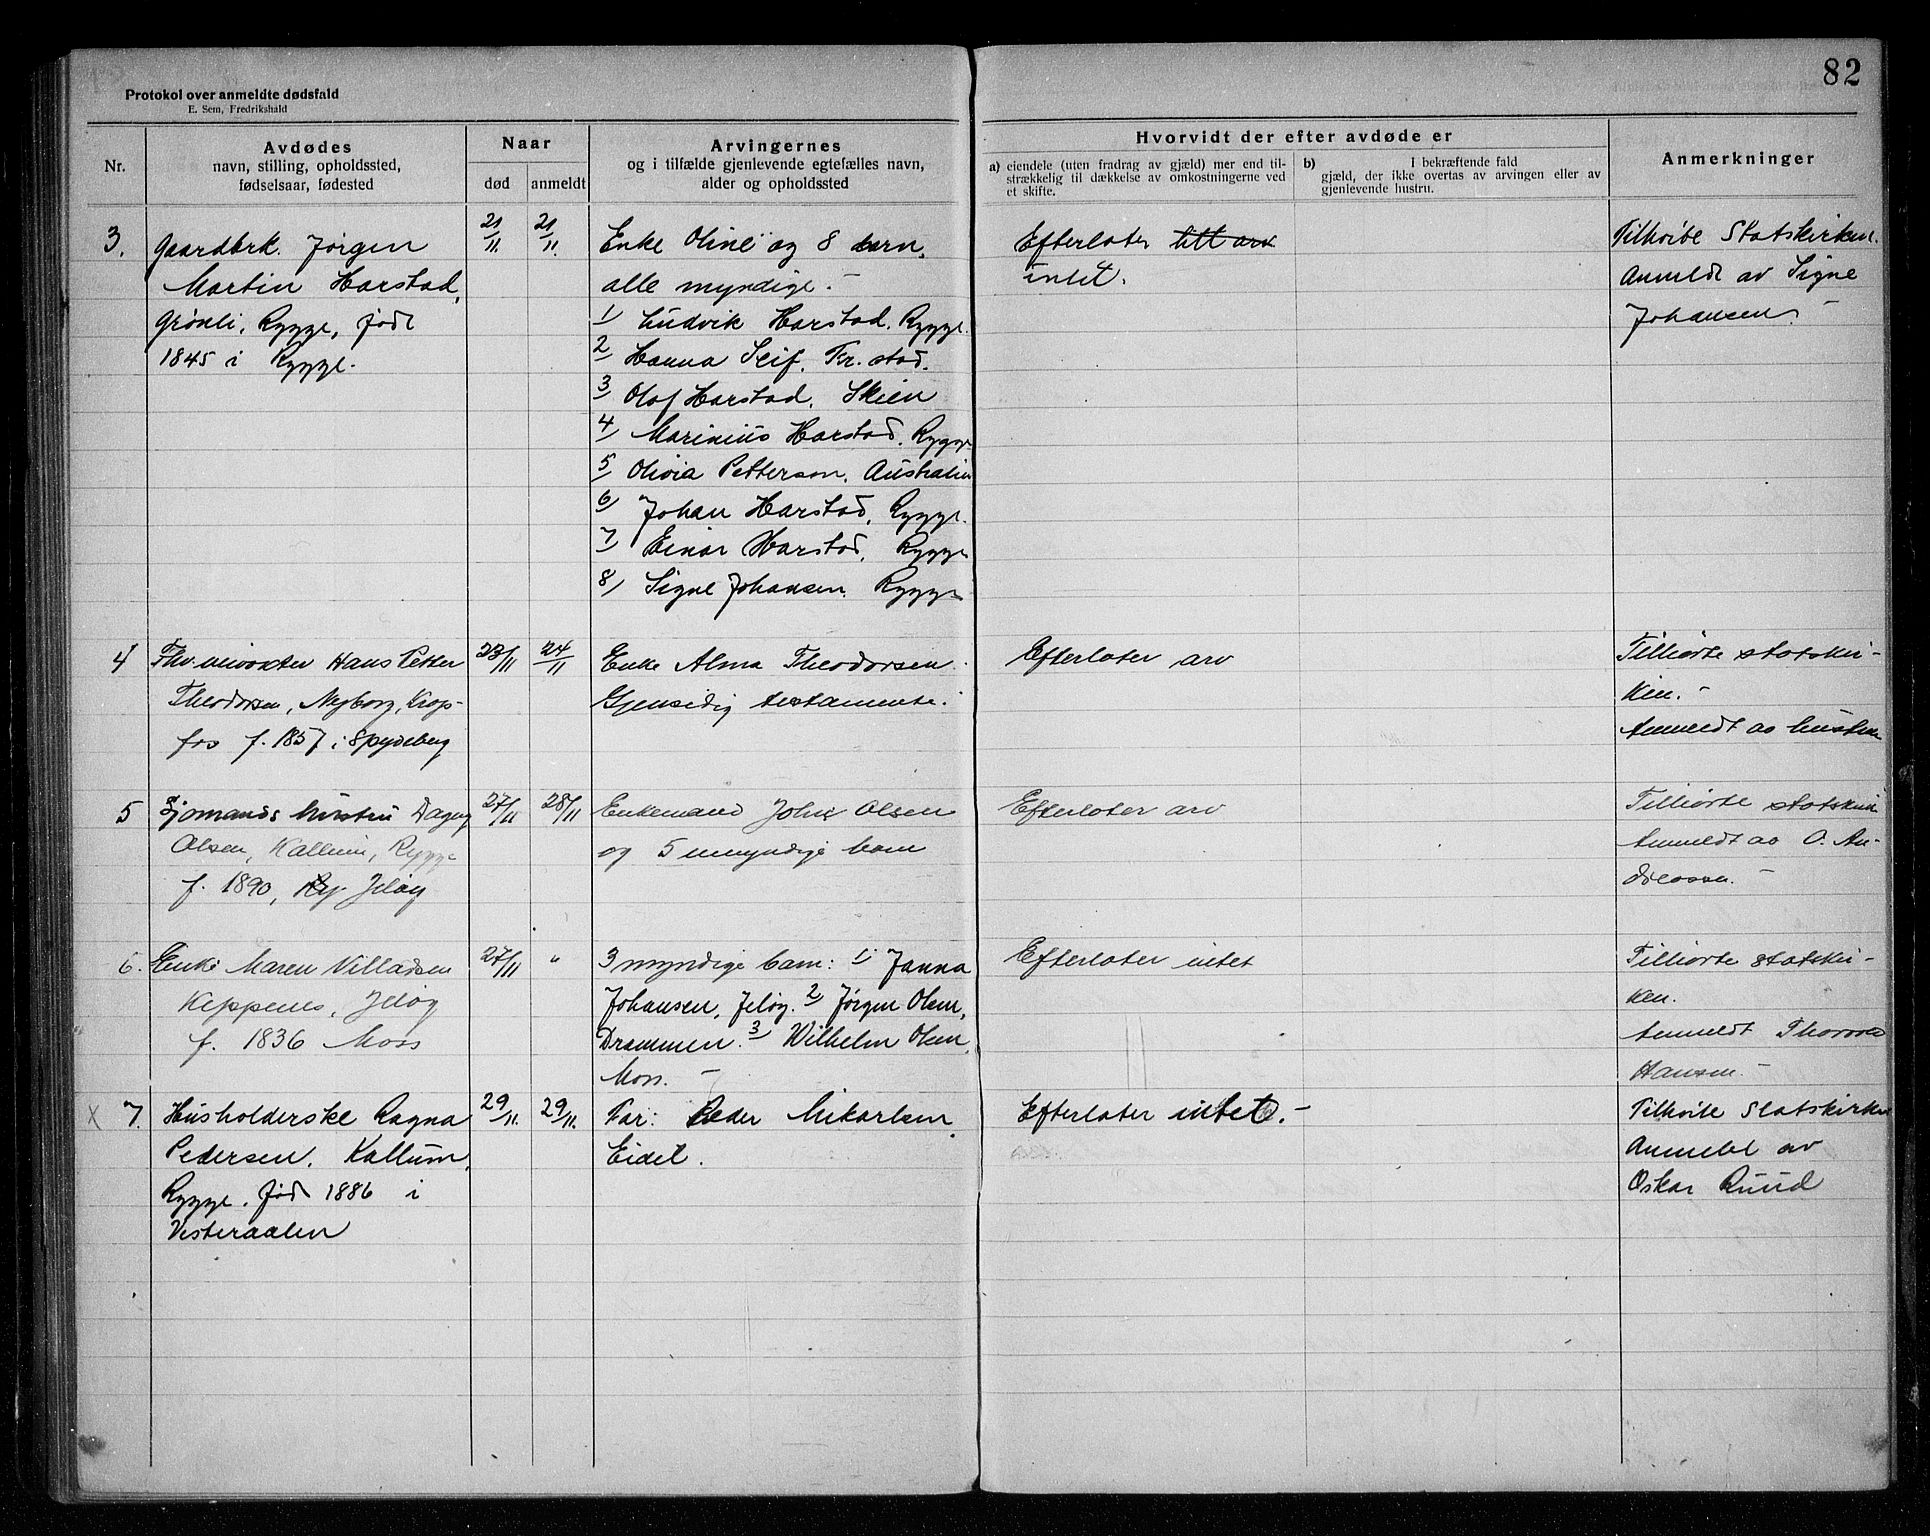 82
Protokol over anmeldte dødsfald
E. Sem, Fredrikshald
Nr.
Avdødes
navn, stilling, opholdssted,
fødselsaar, fødested
Naar
død
anmeldt
Arvingernes
og i tilfælde gjenlevende egtefælles navn,
alder og opholdssted
Hvorvidt der efter avdøde er
a) eiendele (uten fradrag av gjæld) mer end til-
strækkelig til dækkelse av omkostningerne ved
et skifte.
b) I bekræftende fald
gjæld, der ikke overtas av arvingen eller av
gjenlevende hustru.
Anmerkninger
3.
Gaardbrk. Jørgen
Martin Harstad,
Grønli, Rygge, født
1845 i Rygge.
21/11
21/11.
Enke Oline og 8 barn,
alle myndige.-
1/ Ludvik Harstad, Rygge.
2/ Hanna Leif, Fr.stad.
3/ Olaf Harstad, Skien
4/ Marinius Harstad, Rygge
5/ Olivia Petterson, Australien
6/ Johan Harstad, Rygge.
7/ Einar Harstad, Rygge
8/ Signe Johansen, Rygge
Efterlater litt arv
intet.
Tilhørte Statskirken.
Anmeldt av Signe
Johansen.-
4
Hans Petter
Theodorsen, Nyborg, Krop-
fos f. 1857 i Spydeberg
23/11
24/11
Enke Alma Theodorsen.
Gjensidig testamente.
Efterlater arv
Tilhørte statskir-
ken.-
Anmeldt av hustruen
5
Sjømands hustru Dagny
Olsen, Kallum, Rygge
f. 1890, Ry. Jeløy
27/11
28/11
Enkemand John Olsen
og 5 umyndige barn
Efterlater arv
Tilhørte statskirk
Anmeldt av O. An-
dreassen.-
6.
Enke Maren Villadsen
Keppenes, Jeløy
f. 1836 Moss
27/11
"
3 myndige barn: 1/ Janna
Johansen, Jeløy. 2/ Jørgen Olsen,
Drammen. 3/ Wilhelm Olsen,
Moss. -
Efterlater intet
Tilhørte statskir-
ken.
Anmeldt Thorvald
Hansen.-
X 7.
Husholderske Ragna
Pedersen, Kallum,
Rygge. Født 1886 i
Vesteraalen
29/11.
29/11.
Far: Peder Mikarlsen,
Eidet.
Efterlater intet.-
Tilhørte Statskirken
Anmeldt av
Oskar Ruud